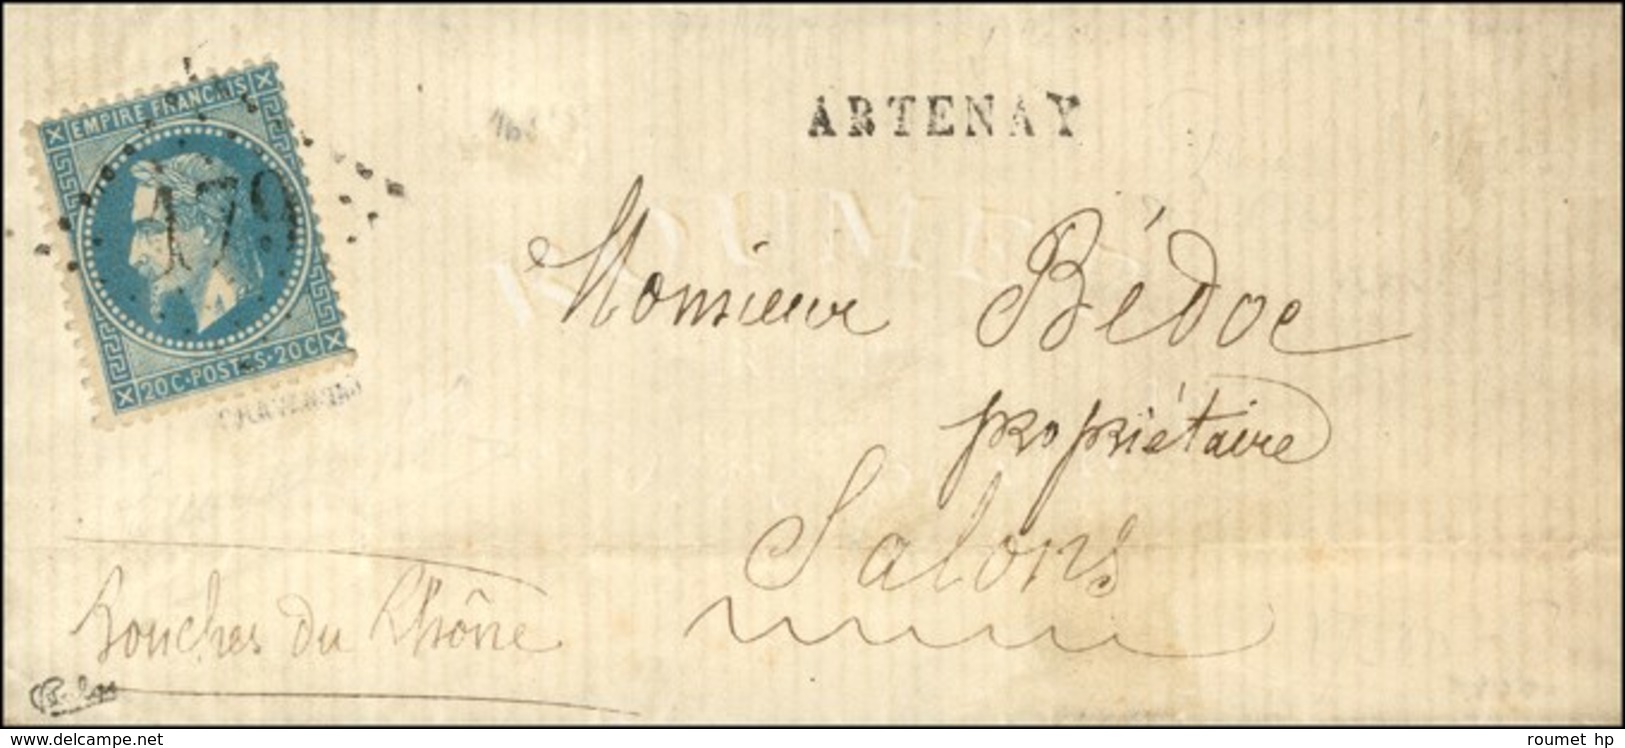 EMPIRE FRANCAIS
179
20 C · POSTES · 20 C
ARTENAY
ROUMET
Monsieur Bédoc
propriétaire
Salons
Bouches du Rhône
www.delcampe.net
roumet hp